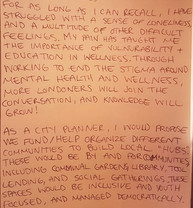 FOR AS LONG AS I CAN RECALL, I HAVE
STRUGGLED WITH A SENSE OF LONELINESS
AND A MULTITUDE OF OTHER DIFFICULT
FEELINGS. MY PAIN HAS TAUGHT ME
THE IMPORTANCE OF VULNERABILITY +
EDUCATION IN WELLNESS. THROUGH
WORKING TO END THE STIGMA AROUND
MENTAL HEALTH AND WELLNESS,
MORE LONDONERS WILL JOIN THE
CONVERSATION, AND KNOWLEDGE WILL
GROW!
AS A CITY PLANNER, I WOULD PROPOSE
WE FUND/HELP ORGANIZE DIFFERENT
COMMUNITIES TO BUILD LOCAL "HUBS"
THESE WOULD BE BY AND FOR COMMUNITIES
INCLUDING COMMUNAL GARDENS, LIBRARY, TOOL
LENDING, AND SOCIAL GATHERINGS. THESE
SPACES WOULD BE INCLUSIVE AND YOUTH
FOCUSED, AND MANAGED DEMOCRATICALLY.